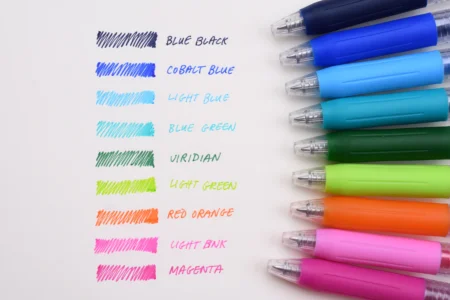 BLUE BLACK
COBALT BLUE
LIGHT BLUE
BLUE GREEN
VIRIDIAN
LIGHT GREEN
RED ORANGE
LIGHT PINK
MAGENTA